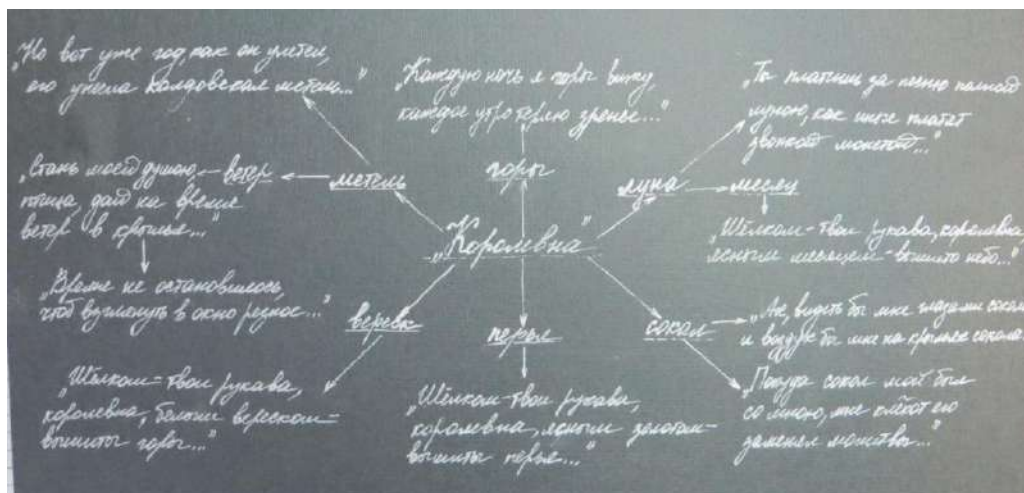 „Но вот уже год, как он улетел,
его унесла колдовская метель..."
„Каждую ночь я горы вижу,
каждое утро теряю зренье..."
„Ты платишь за песню полной
луною, как иные платят
звонкой монетой..."
„Стань моей душою,
птица, дай на время
ветер в крылья..."
ветер
метель
горы
луна
месяц
„Королевна"
„Шёлком - твои рукава, королевна,
ясным месяцем - вышито небо..."
„Время не остановилось,
чтоб взглянуть в окно резное..."
вереск
перья
сокол
„Ах, видеть бы мне глазами сокола,
и в воздух бы мне на крыльях сокола
„Шёлком - твои рукава,
королевна, белым вереском -
вышиты горы..."
„Шёлком - твои рукава,
королевна, ясным золотом -
вышиты перья..."
„Покуда сокол мой был
со мною, мне клёкот его
заменял молитвы..."